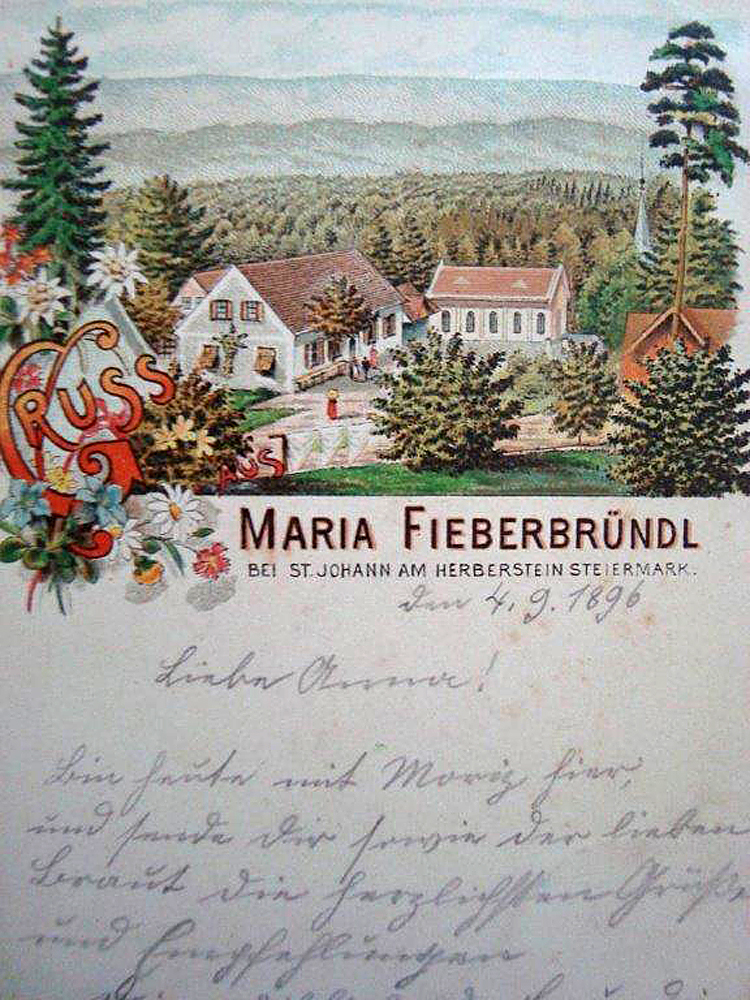 GRUSS
AUS
MARIA FIEBERBRÜNDL
BEI ST. JOHANN AM HERBERSTEIN STEIERMARK.
den 4. 9. 1896
Liebe Anna!
Bin heute mit Moriz hier,
und sende dir sowie der lieben
Braut die herzlichsten Grüße
und Empfehlungen